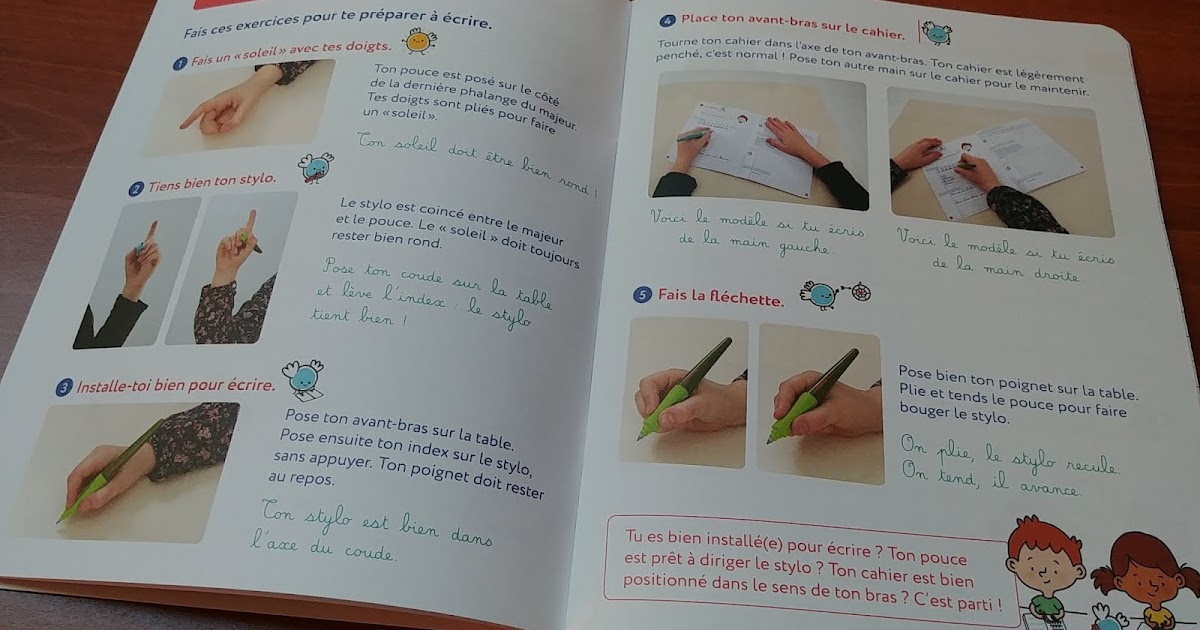 Fais ces exercices pour te préparer à écrire.
1 Fais un « soleil » avec tes doigts.
Ton pouce est posé sur le côté
de la dernière phalange du majeur.
Tes doigts sont pliés pour faire
un « soleil ».
Ton soleil doit être bien rond !
2 Tiens bien ton stylo.
Le stylo est coincé entre le majeur
et le pouce. Le « soleil » doit toujours
rester bien rond.
Pose ton coude sur la table
et lève l'index : le stylo
tient bien !
3 Installe-toi bien pour écrire.
Pose ton avant-bras sur la table.
Pose ensuite ton index sur le stylo,
sans appuyer. Ton poignet doit rester
au repos.
Ton stylo est bien dans
l'axe du coude.
4 Place ton avant-bras sur le cahier.
Tourne ton cahier dans l'axe de ton avant-bras. Ton cahier est légèrement
penché, c'est normal ! Pose ton autre main sur le cahier pour le maintenir.
Voici le modèle si tu écris
de la main gauche.
Voici le modèle si tu écris
de la main droite.
5 Fais la fléchette.
Pose bien ton poignet sur la table.
Plie et tends le pouce pour faire
bouger le stylo.
On plie, le stylo recule.
On tend, il avance.
Tu es bien installé(e) pour écrire ? Ton pouce
est prêt à diriger le stylo ? Ton cahier est bien
positionné dans le sens de ton bras ? C'est parti !